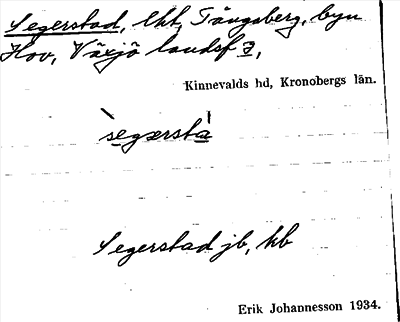 Segerstad, lht, Tångsberg, byn
Hov, Växjö landsf 3,
Kinnevalds hd, Kronobergs län.
segærsta
Segerstad jb, kb
Erik Johannesson 1934.